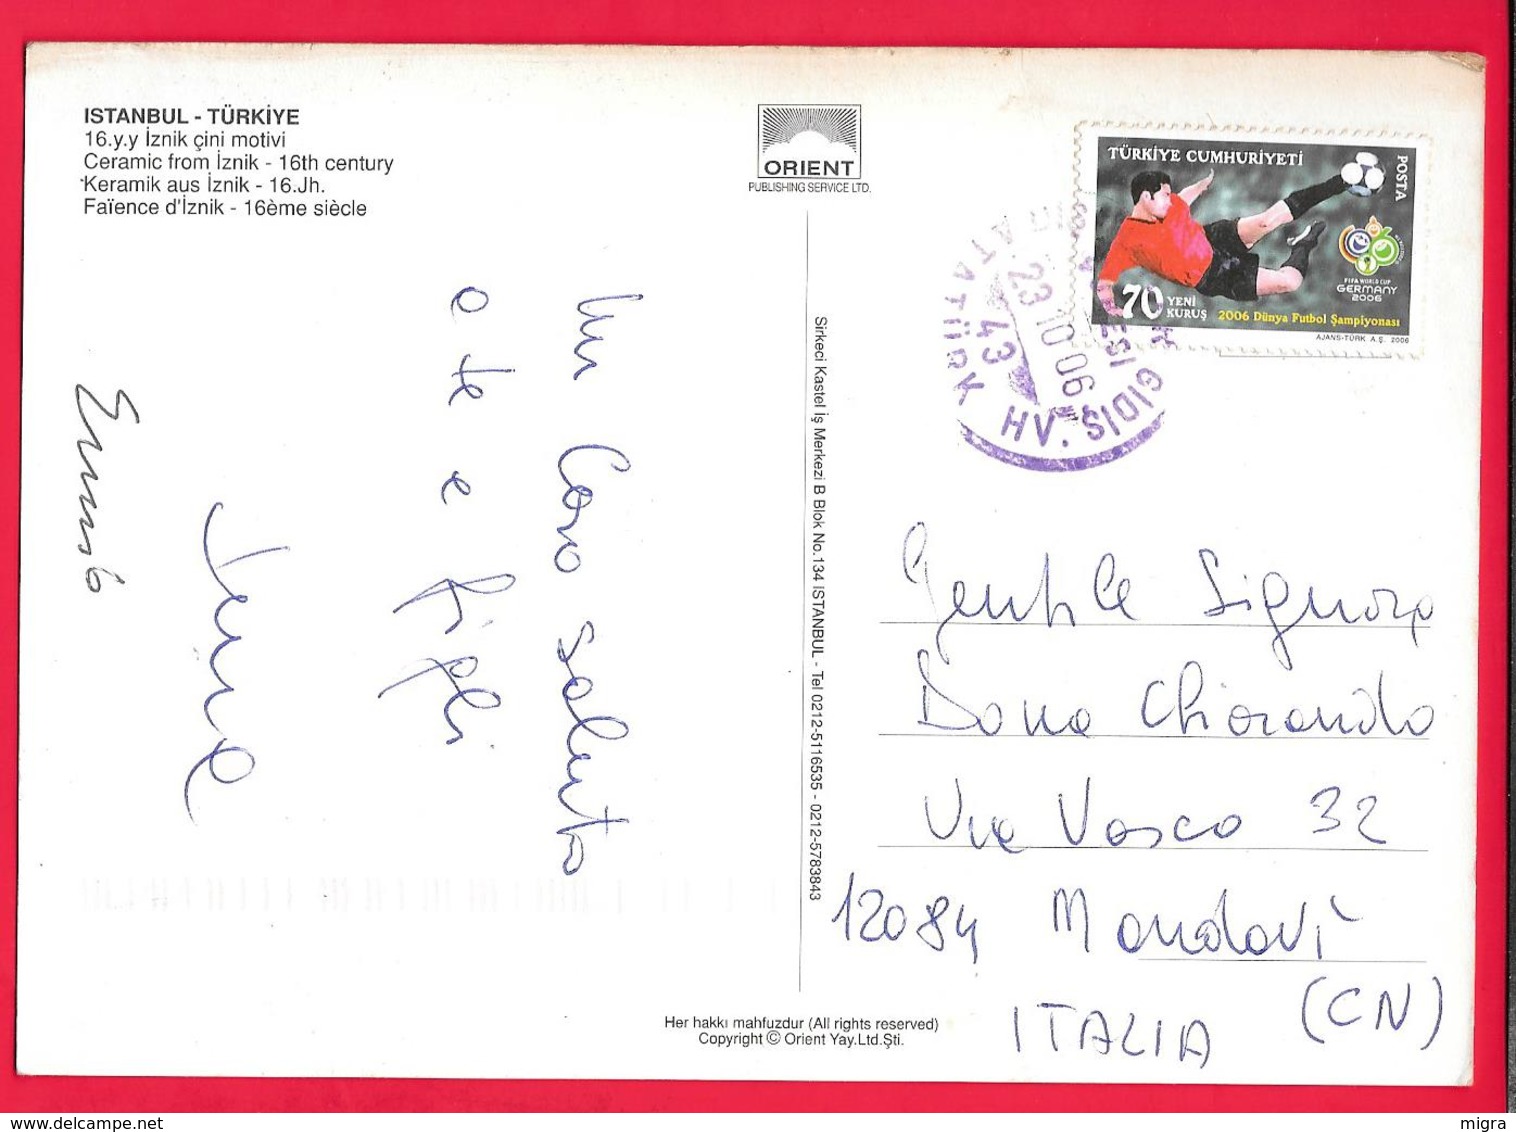 ISTANBUL - TÜRKİYE
16.y.y İznik çini motivi
Ceramic from İznik - 16th century
Keramik aus İznik - 16.Jh.
Faïence d'İznik - 16ème siècle
ORIENT
PUBLISHING SERVICE LTD.
TÜRKİYE CUMHURİYETİ
POSTA
FIFA WORLD CUP
GERMANY
2006
70 YENİ
KURUŞ
2006 Dünya Futbol Şampiyonası
AJANS-TÜRK A.Ş. 2006
ATATÜRK HV. GİDİŞ
43
23 10 06
Un caro saluto
a te e
figli
Ernesto
Sirkeci Kastel İş Merkezi B Blok No.134 İSTANBUL - Tel 0212-5116535 - 0212-5783843
Gentile Signora
Dona Chiorando
Via Vasco 32
12084 Mondovì
(CN)
ITALIA
Her hakkı mahfuzdur (All rights reserved)
Copyright © Orient Yay.Ltd.Şti.
www.delcampe.net
migra